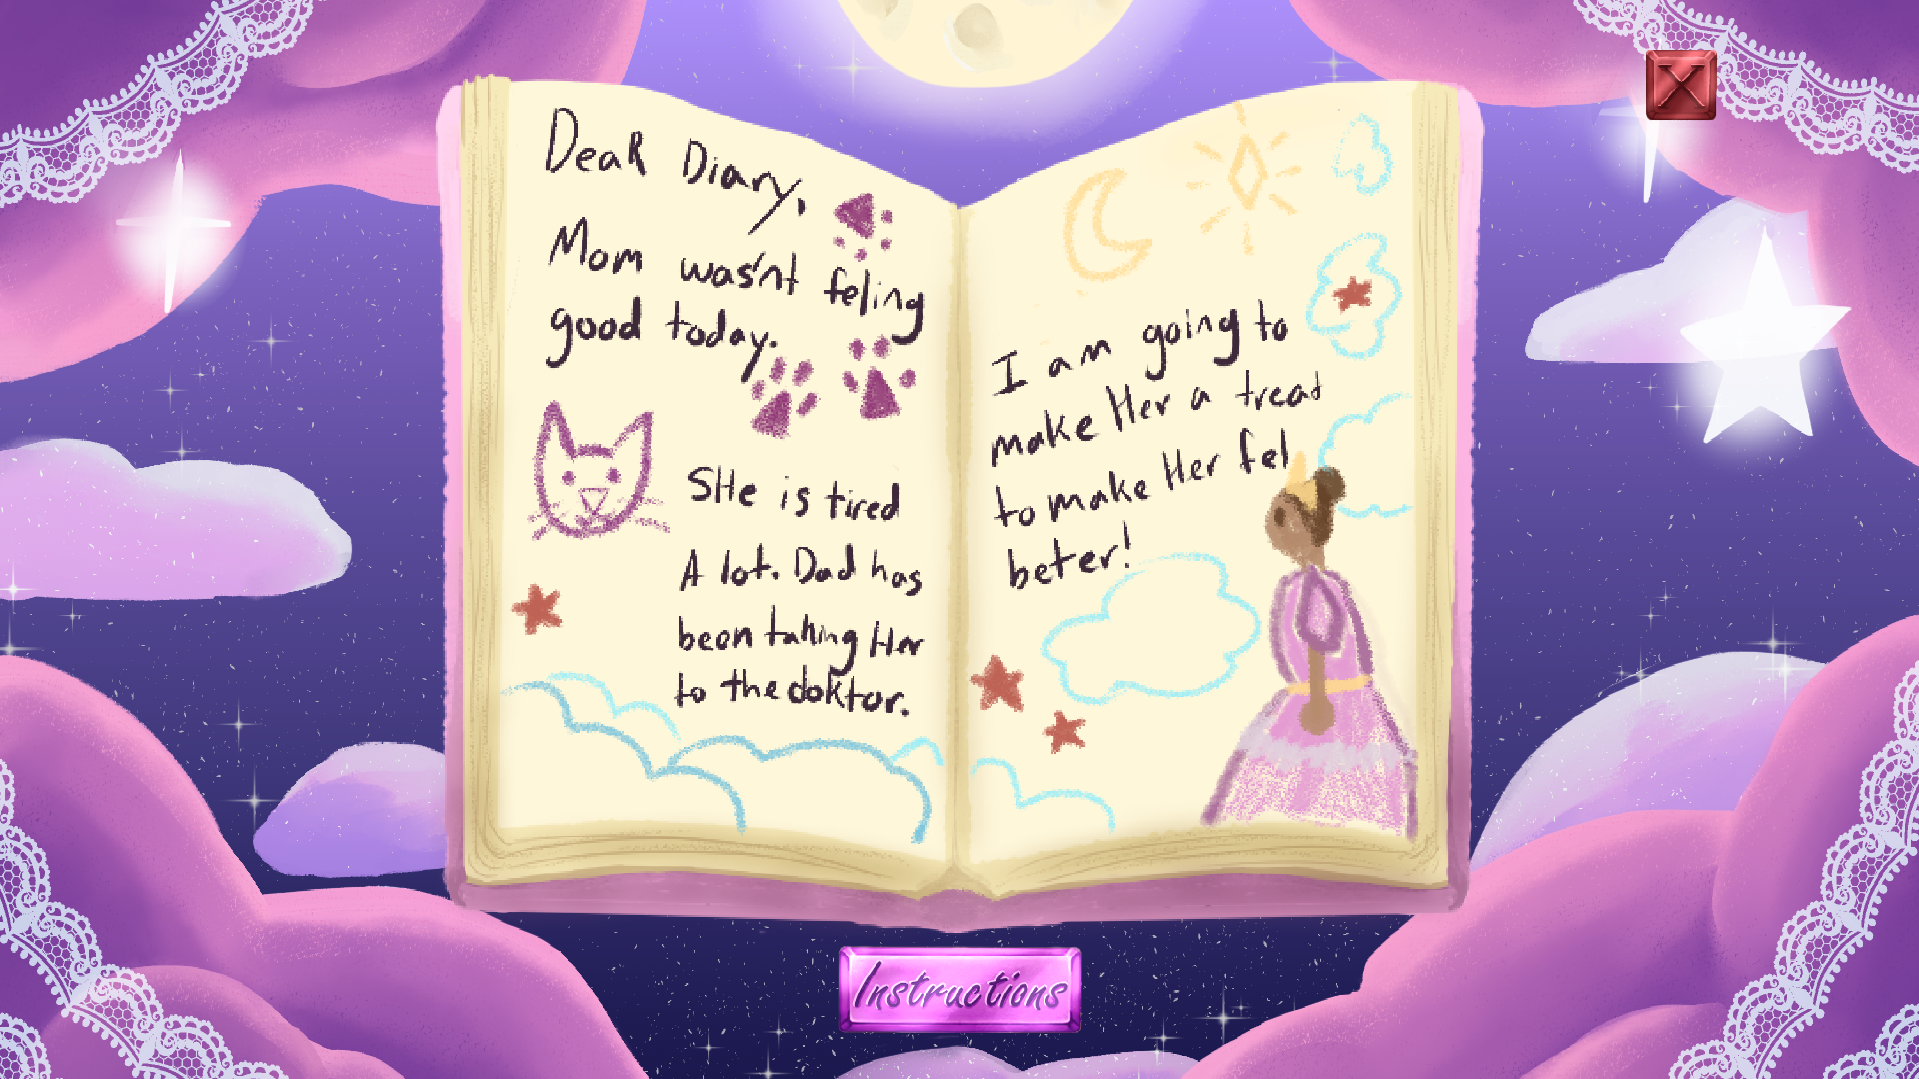 Dear Diary,
Mom was'nt feling
good today.
SHe is tired
A lot. Dad has
been taking Her
to the doktor.
I am going to
make Her a treat
to make Her fel
beter!
X
Instructions